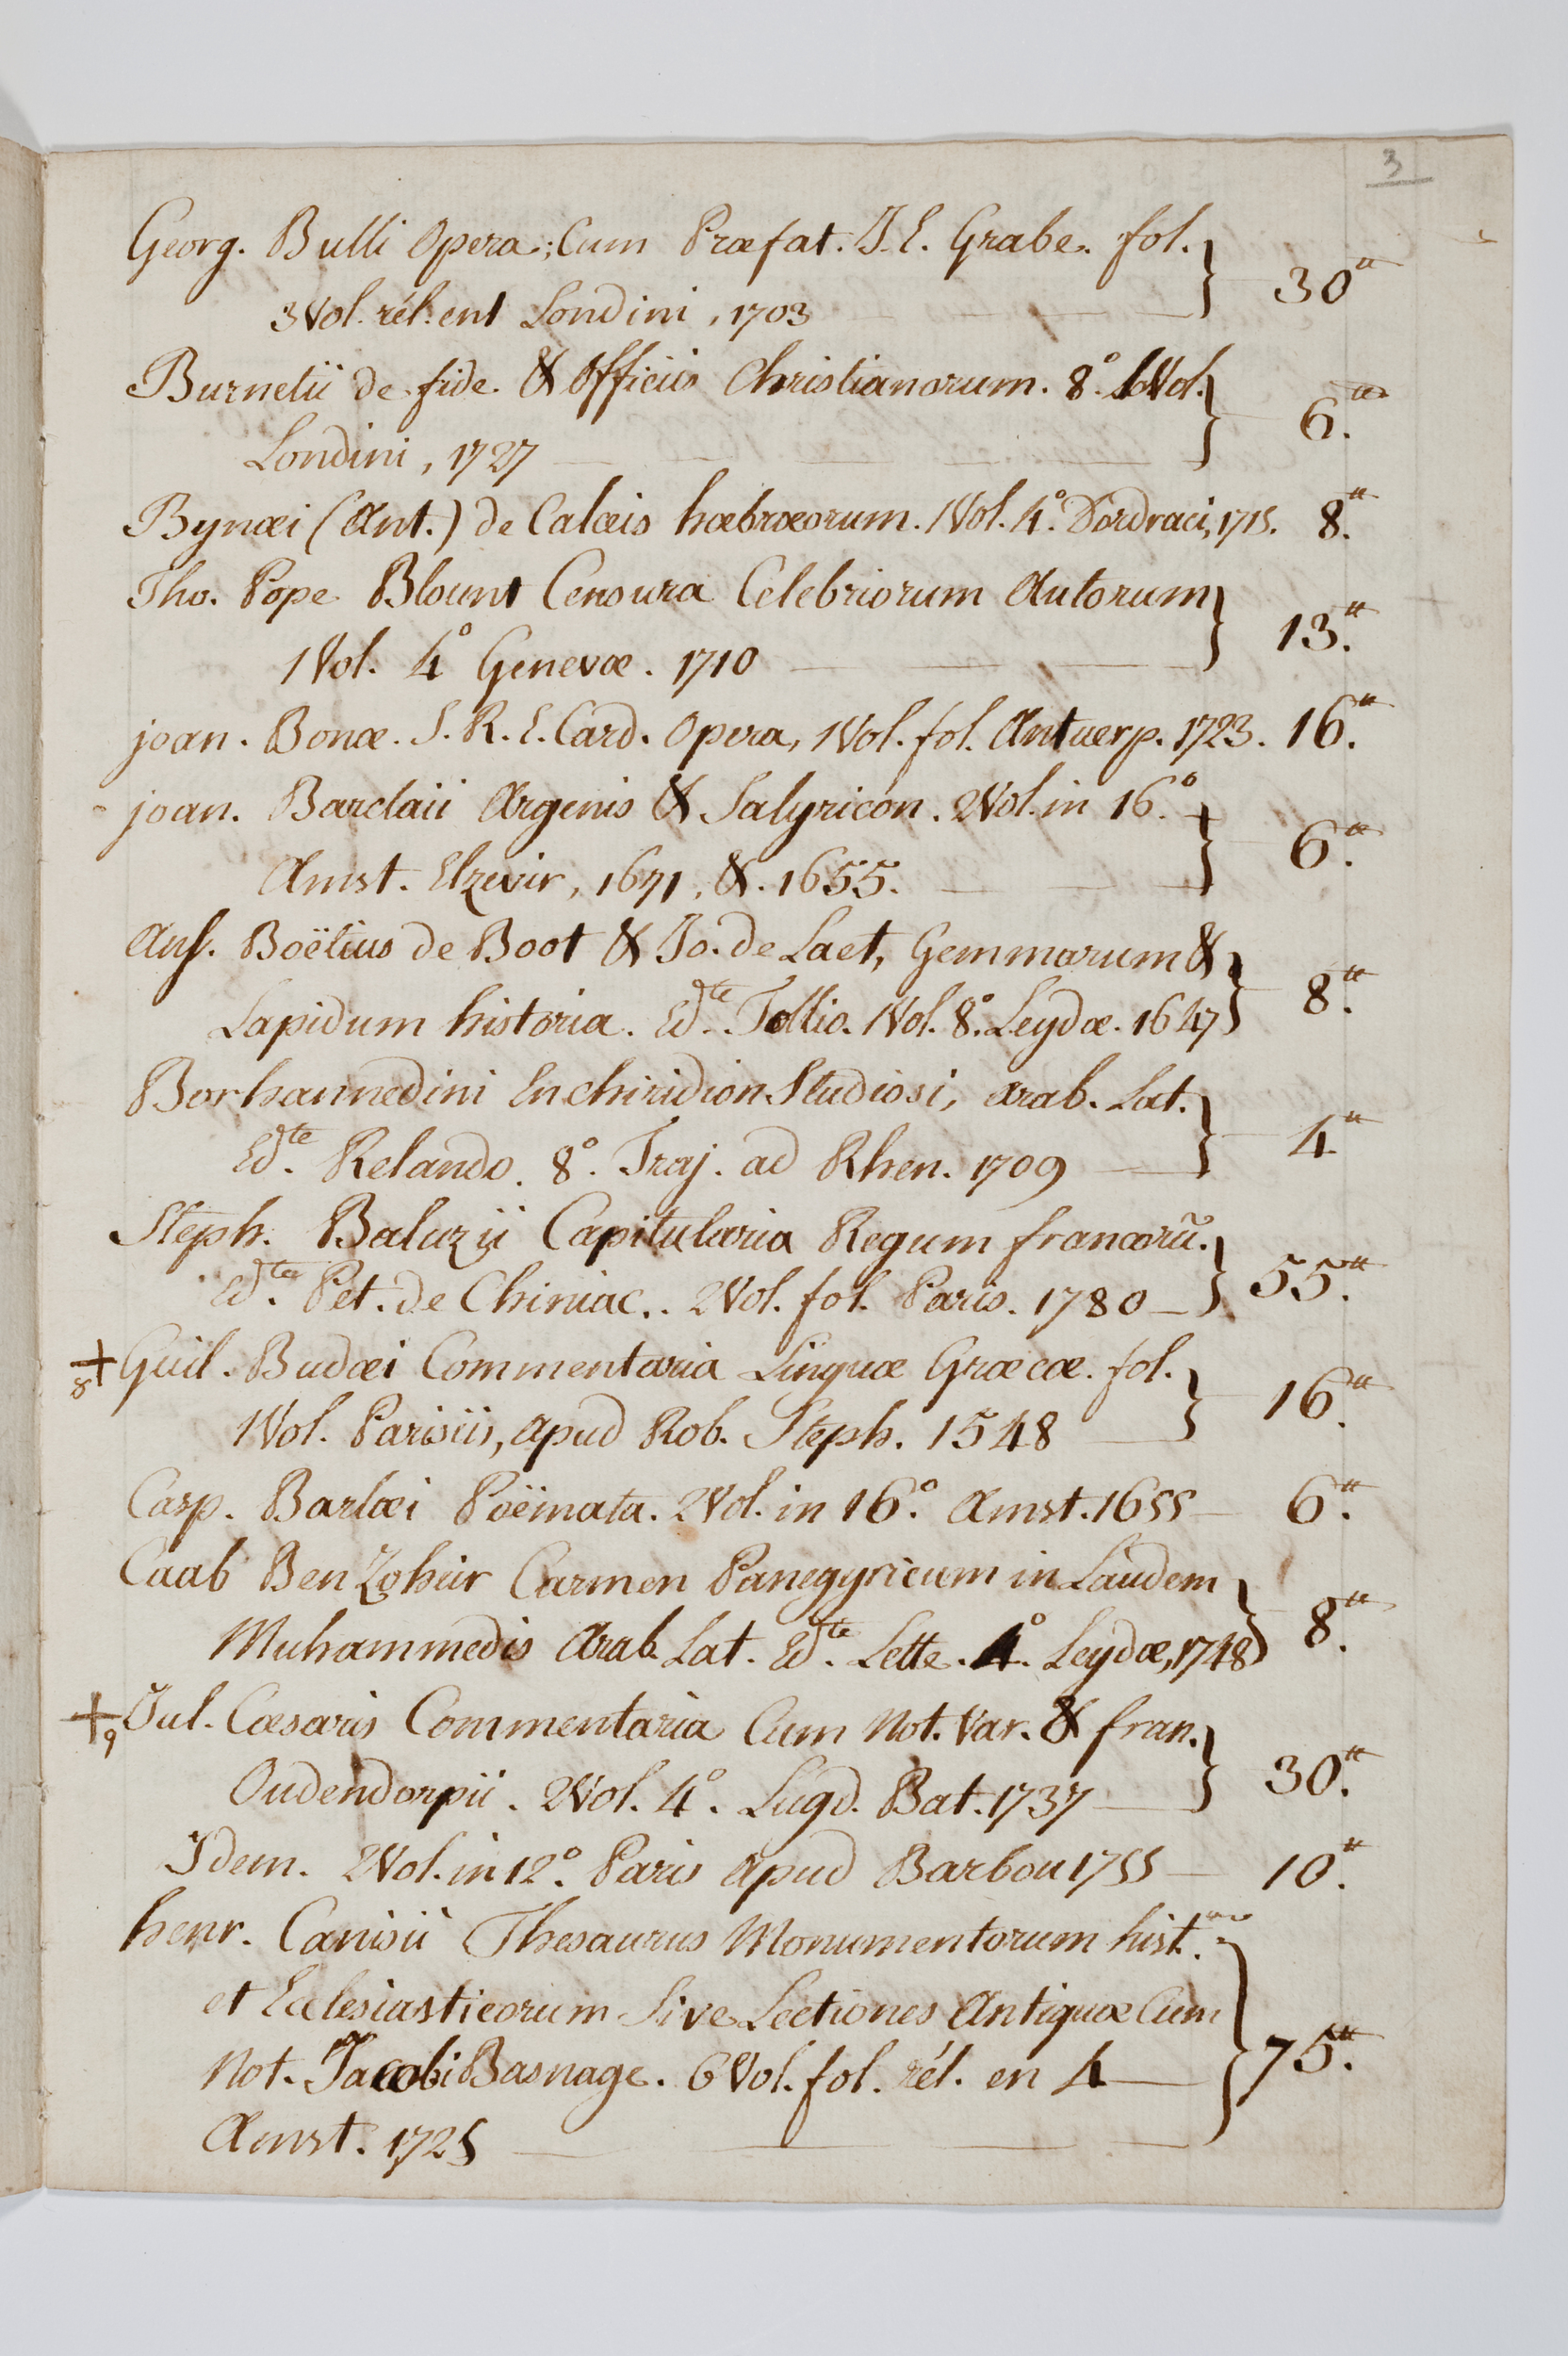 3
Georg. Bulli Opera; Cum Præfat. J. E. Grabe. fol.
3 Vol. rél. en 1 Londini, 1703 30"
Burnetii de fide & Officiis Christianorum. 8º. 1 Vol.
Londini, 1727 6."
Bynæi (Ant.) de Calceis hæbræorum. 1 Vol. 4º. Dordraci, 1715. 8."
Tho. Pope Blount Censura Celebriorum Autorum
1 Vol. 4º Genevæ. 1710 13."
joan. Bonæ. S. R. E. Card. Opera, 1 Vol. fol. Antuerp. 1723. 16."
joan. Barclaii Argenis & Satyricon. 2 Vol. in 16º.
Amst. Elzevir, 1671, & 1655. 6."
Ans. Boëtius de Boot & Jo. de Laet, Gemmarum &
Lapidum historia. Edte. Tollio. 1 Vol. 8º. Leydæ. 1647 8."
Borhaneddini Enchiridion Studiosi, arab. Lat.
Edte. Relando. 8º. Traj. ad Rhen. 1709 4"
Steph. Baluzii Capitularia Regum francorũ.
Edte. Pet. de Chiniac.. 2 Vol. fol. Paris. 1780 55."
+8 Guil. Budæi Commentaria Linguæ Græcæ. fol.
1 Vol. Parisiis, apud Rob. Steph. 1548 16."
Casp. Barlæi Poëmata. 2 Vol. in 16º. Amst. 1655 6."
Caab Ben Zoheir Carmen Panegyricum in Laudem
Muhammedis Arab. Lat. Edte. Lette. 4º. Leydæ, 1748 8."
+9 Jul. Cæsaris Commentaria Cum Not. Var. & fran.
Oudendorpii. 2 Vol. 4º. Lugd. Bat. 1737 30."
Idem. 2 Vol. in 12º. Paris apud Barbou 1755 10."
henr. Canisii Thesaurus Monumentorum hist.
et Ecclesiasticorum Sive Lectiones Antiquæ Cum
Not. Jacobi Basnage. 6 Vol. fol. rél. en 4 75."
Amst. 1725